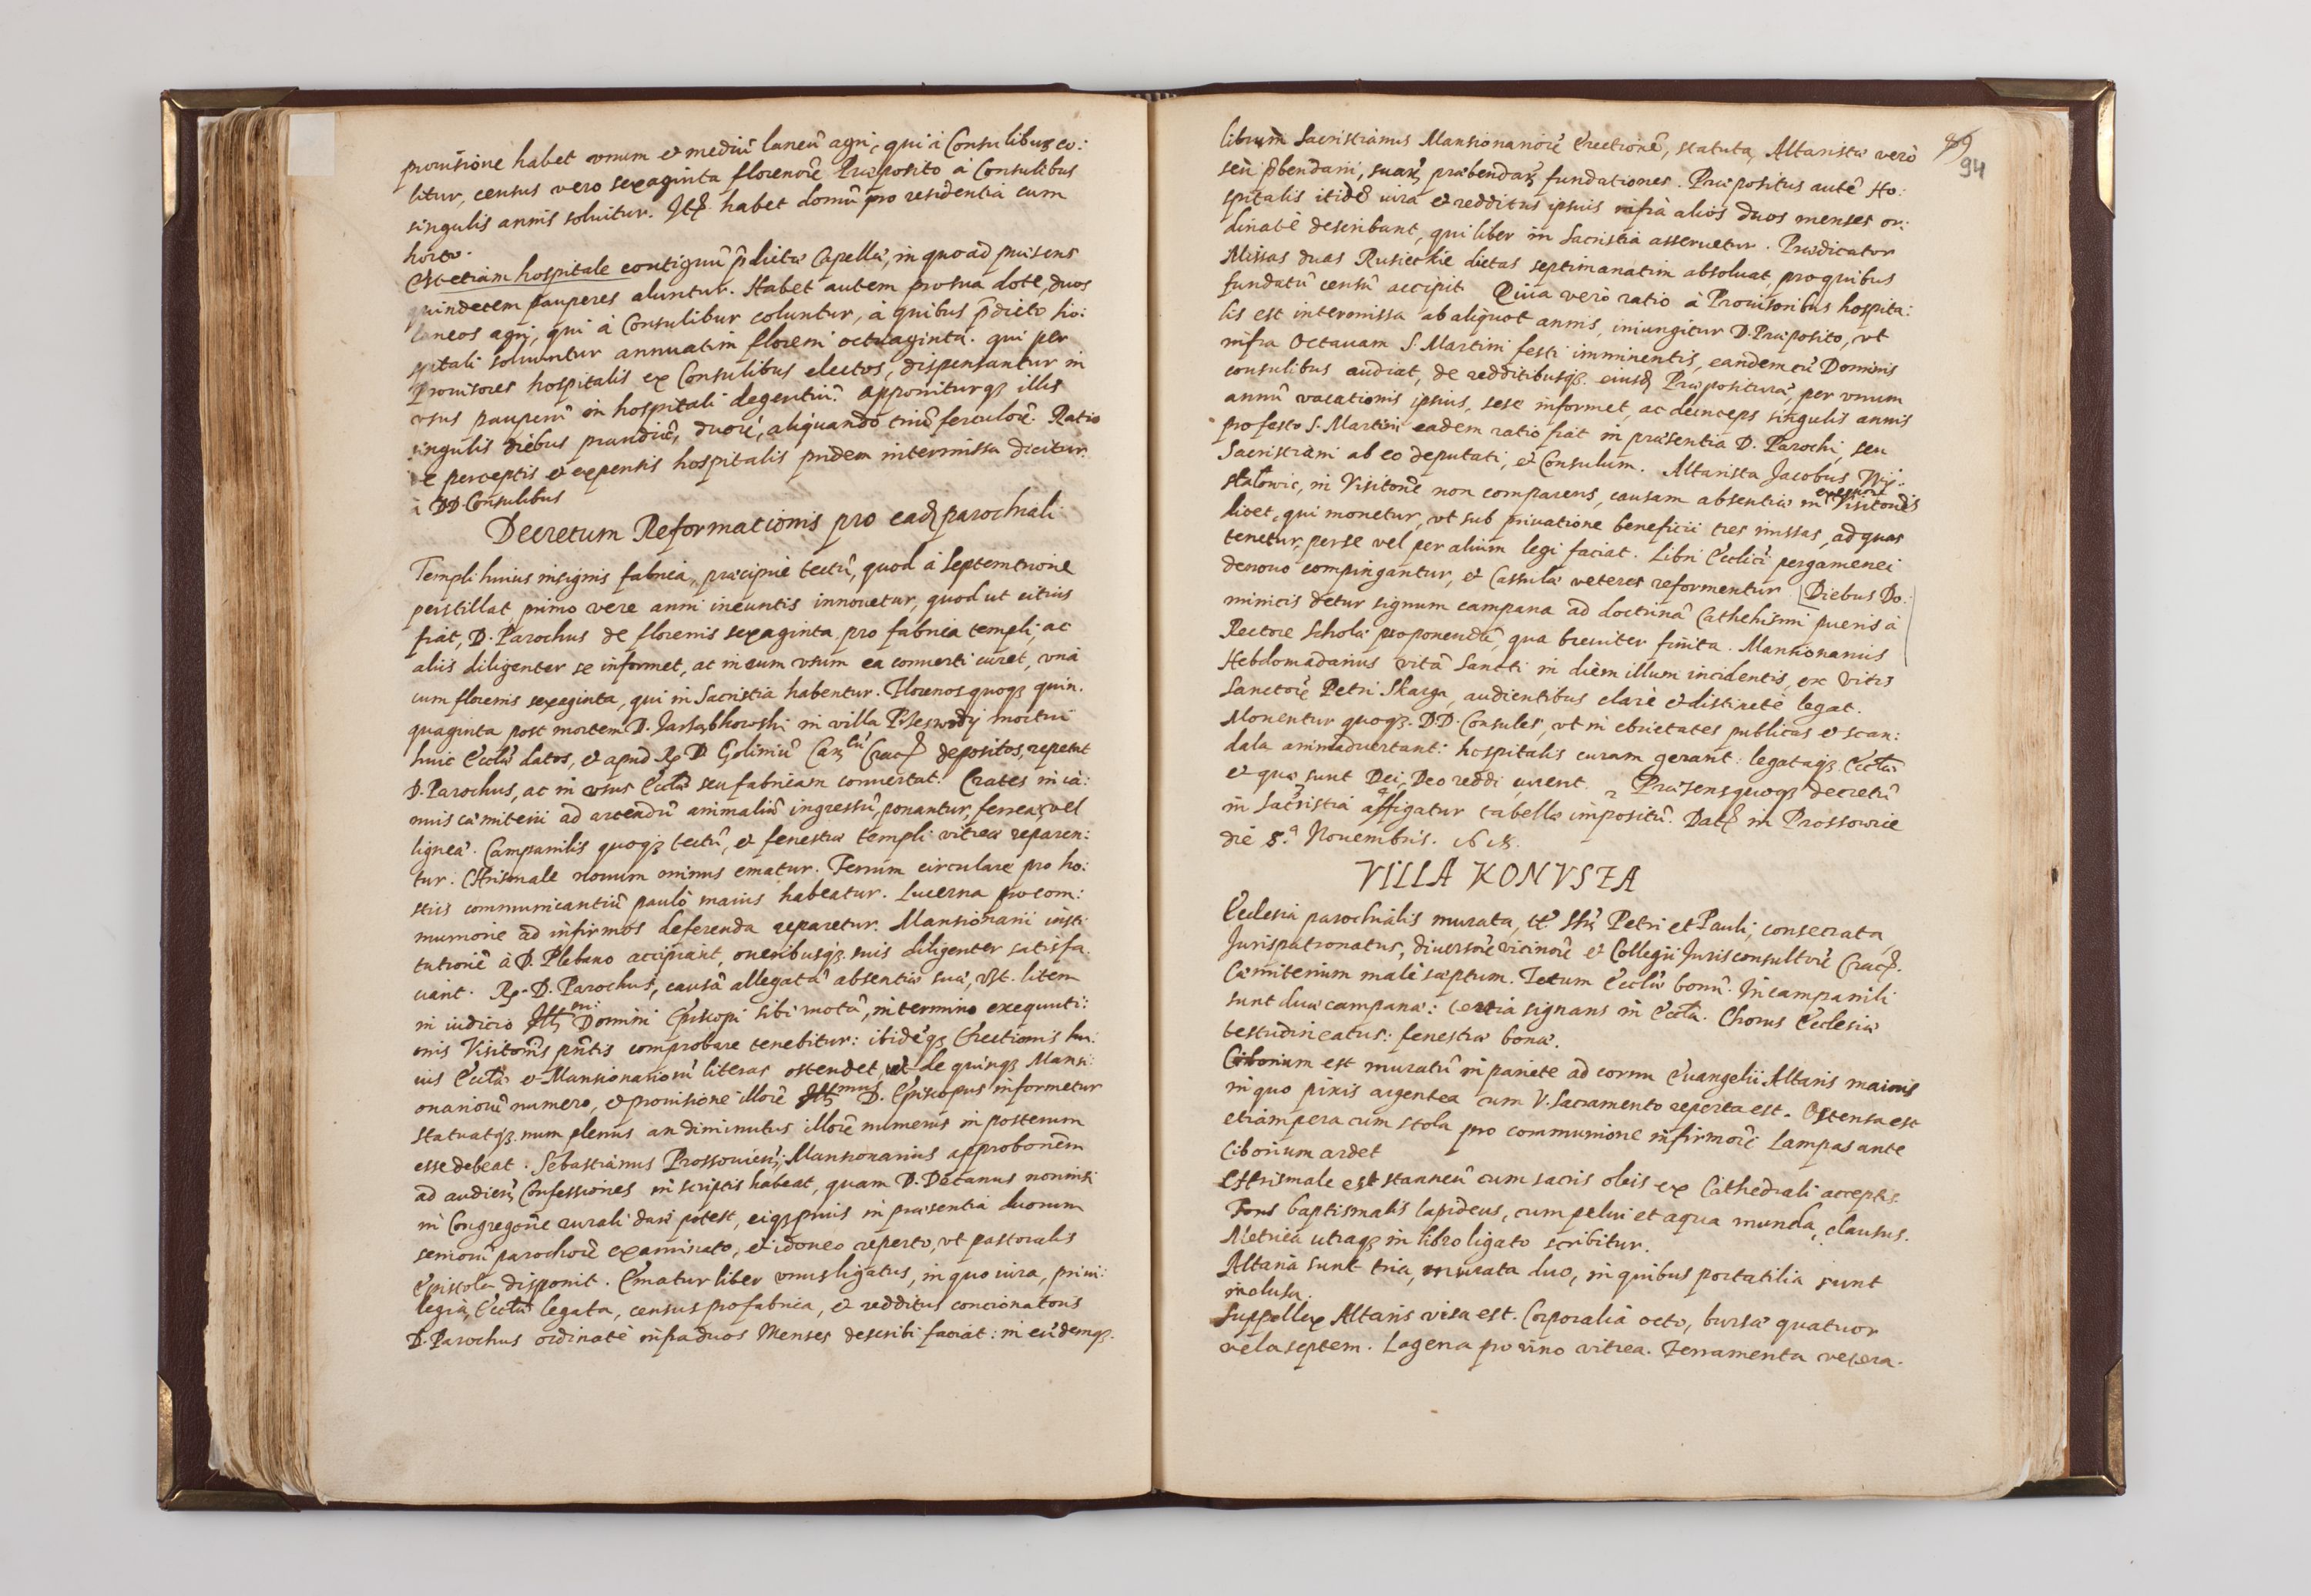 prouisione habet vnum et mediũ laneũ agri, qui à Consulibus co:
litur, census vero sexaginta florenorũ Præposito à Consulibus
singulis annis soluitur. Itẽ habet domũ pro residentia cum
horto.
Est etiam hospitale contiguũ p̃dictæ Capellæ, in quo ad præsens
quindecem pauperes aluntur. Habet autem pro sua dote, duos
laneos agri, qui à Consulibus coluntur, à quibus p̃dicto ho:
spitali soluuntur annuatim floreni octuaginta. qui per
Prouisores hospitalis ex Consulibus electos, dispensantur in
vsus pauperũ in hospitali degentiũ. Apponiturqz illis
singulis diebus prandiũ, duorũ, aliquando triũ ferculorũ. Ratio
e perceptis et expensis hospitalis pridem intermissa dicitur
à DD. Consulibus
Decretum Reformationis pro eadẽ parochiali
Templi huius insignis fabrica, præcipuè tectũ, quod à septemtrione
perstillat, primo vere anni ineuntis innouetur, quod ut citius
fiat, D. Parochus de florenis sexaginta pro fabrica templi, ac
aliis diligenter se informet, ac in eum vsum ea conuerti curet, vnà
cum florenis sexaginta, qui in Sacristia habentur. Florenos quoqz quin.
quaginta post mortem D. Jarzabkowski in villa mortui
huic Eccłæ datos, et apud R. D. Goliniũ Can. cũ Crac. depositos, repetat
D. Parochus, ac in vsus Eccłæ seu fabricam conuertat. Crates in ia:
nuis cæmiterii ad arcendũ animaliũ ingressũ, ponantur, ferreæ, vel
ligneæ. Campanilis quoqz tectũ, et fenestræ templi vitreæ reparen:
tur. Chrismale nouum omnino ematur. Ferrum circulare pro ho:
stiis communicantiũ paulò maius habeatur. Lucerna pro com:
munione ad infirmos deferenda reparetur. Mansionarii insti
tutionẽ à D. Plebano accipiant, oneribusqz suis diligenter satisfa
ciant. R. D. Parochus, causã allegatã absentiæ suæ, vłt. litem
in iudicio Illmi Domini Episcopi sibi motã, in termino exequuti:
onis Visitońis pñtis comprobare tenebitur: ibidẽqz Erectionis hu:
ius Eccłæ et Mansionariorũ literas ostendet, ut de quinqz Mansi:
onariorũ numero, et prouisione illorũ Illmus D. Episcopus informetur
statuatqz num plenus an diminutus illorũ numerus in posterum
esse debeat. Sebastianus Prossouien: Mansionarius approbońem
ad audien: Confessiones in scriptis habeat, quam D. Decanus nonnisi
in Congregońe rurali dari potest, eiqz prius in præsentia duorum
seniorũ parochorũ examinato, et idoneo reperto, vt pastoralis
Epistola disponit. Ematur liber vnus ligatus, in quo iura, priui:
legia, Eccłæ legata, census pro fabrica, et redditus concionatoris
D. Parochus ordinatè infra duos Menses describi faciat: in eũdemqz.
89
94
librum Sacristianus Mansionariorũ Erectionẽ, statuta, Altaristæ verò
seu p̃bendarii, suarũ præbendarũ fundationes. Præpositus autẽ Ho:
spitalis itidẽ iura et redditus ipsius infra alios duos menses or:
dinatè describant, qui liber in Sacristia asseruetur. Prædicator
Missas duas Rusieckie dictas septimanatim absoluat, pro quibus
fundatũ censũ accipit Quia verò ratio à Prouisoribus hospita:
lis est intermissa ab aliquot annis, iniungitur D. Præposito, vt
infra Octauam S. Martini festi imminentis, eandem cũ Dominis
consulibus audiat, de redditibusqz. eiusdẽ Præposituræ, per vnum
annũ vacationis ipsius, sese informet, ac deinceps singulis annis
profesto S. Martini eadem ratio fiat in præsentia D. Parochi, seu
Sacristiani ab eo deputati, et Consulum. Altarista Jacobus
stałowic, in Visitońe non comparens, causam absentiæ in executi Visitońis
licet, qui monetur, vt sub priuatione beneficii tres missas, ad quas
tenetur, per se vel per alium legi faciat. Libri Eccłici pergamenei
denouo compingantur, et Cassulæ veteres reformentur. Diebus Do:
minicis detur signum campana ad doctrinã Cathehismi pueris à
Rectore scholæ proponendã, qua breuiter finita. Mansionarius
Hebdomadarius vitã Sancti in diem illum incidentis, ex vitis
Sanctorũ Petri Skarga, audientibus clarè et distinctè legat.
Monentur quoqz. DD. Consules, vt in ebrietates publicas et scan:
dala animaduertant: hospitalis curam gerant: legataqz Eccłæ
et quæ sunt Dei, Deo reddi curent. Præsens quoqz decretũ
in Sacristia affigatur tabellæ impositũ. Datũ in Prossowice
die 5.a Nouembris. 1618.
VILLA KONVSZA
Ecclesia parochialis murata, tt. Stũ Petri et Pauli, consecrata
Jurispatronatus, diuersorũ vicinorũ et Collegii Jurisconsultorũ Crac.
Cæmiterium malè sæptum. Tectum Eccłæ bonũ. In campanili
sunt duæ campanæ: tertia signans in Eccła. Chorus Ecclesiæ
testudineatus: fenestræ bonæ.
Ciborium est muratũ in pariete ad cornu Euangelii Altaris maioris
in quo pixis argentea cum V. Sacramento reperta est. Ostensa est
etiam pera cum stola pro communione infirmorũ Lampas ante
Ciborium ardet
Chrismale est stanneũ cum sacris oleis ex Cathedrali acceptis.
Fons baptismalis lapideus, cum pelui et aqua munda, clausus.
Metrica utraqz in libro ligato scribitur.
Altaria sunt tria, murata duo, in quibus portatilia sunt
inclusa.
Suppellex Altaris visa est. Corporalia octo, bursæ quatuor
vela septem. Lagena pro vino vitrea. Ferramenta vetera.